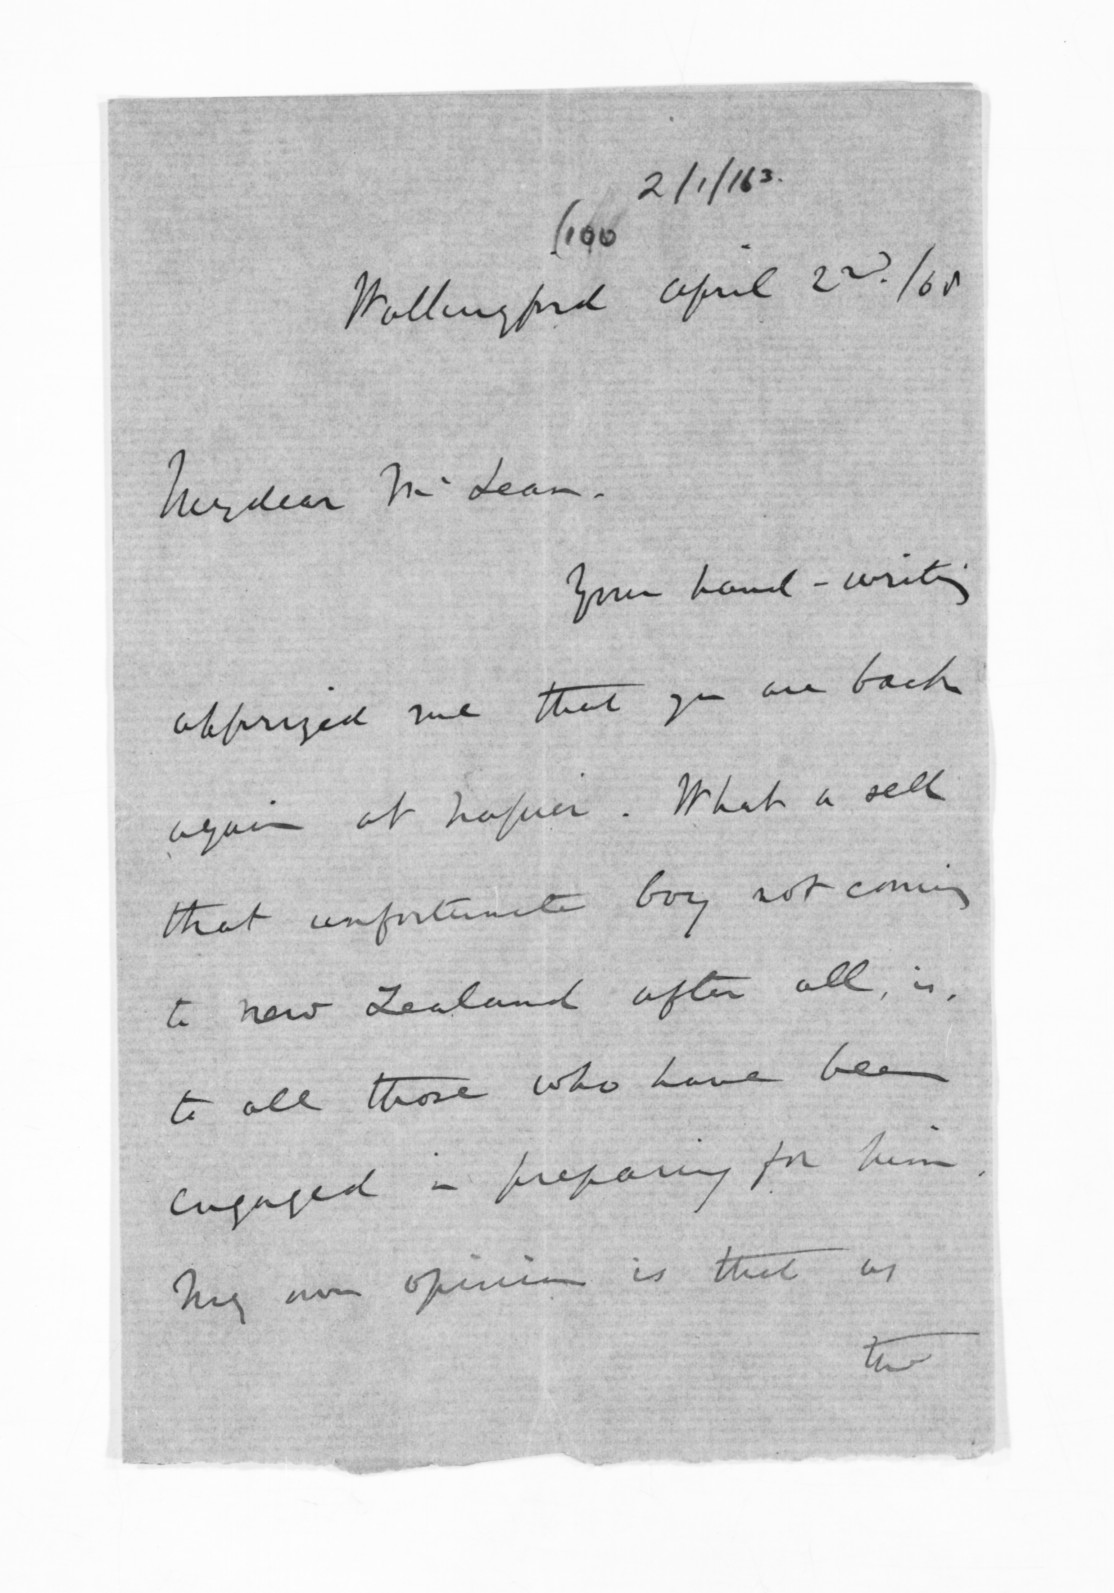 2/1/163.
(100
Wallingford April 2nd./68
My dear McLean.
Your hand-writing
apprized me that you are back
again at Napier. What a sell
that unfortunate boy not coming
to New Zealand after all, is,
to all those who have been
engaged in preparing for him.
My own opinion is that as
the